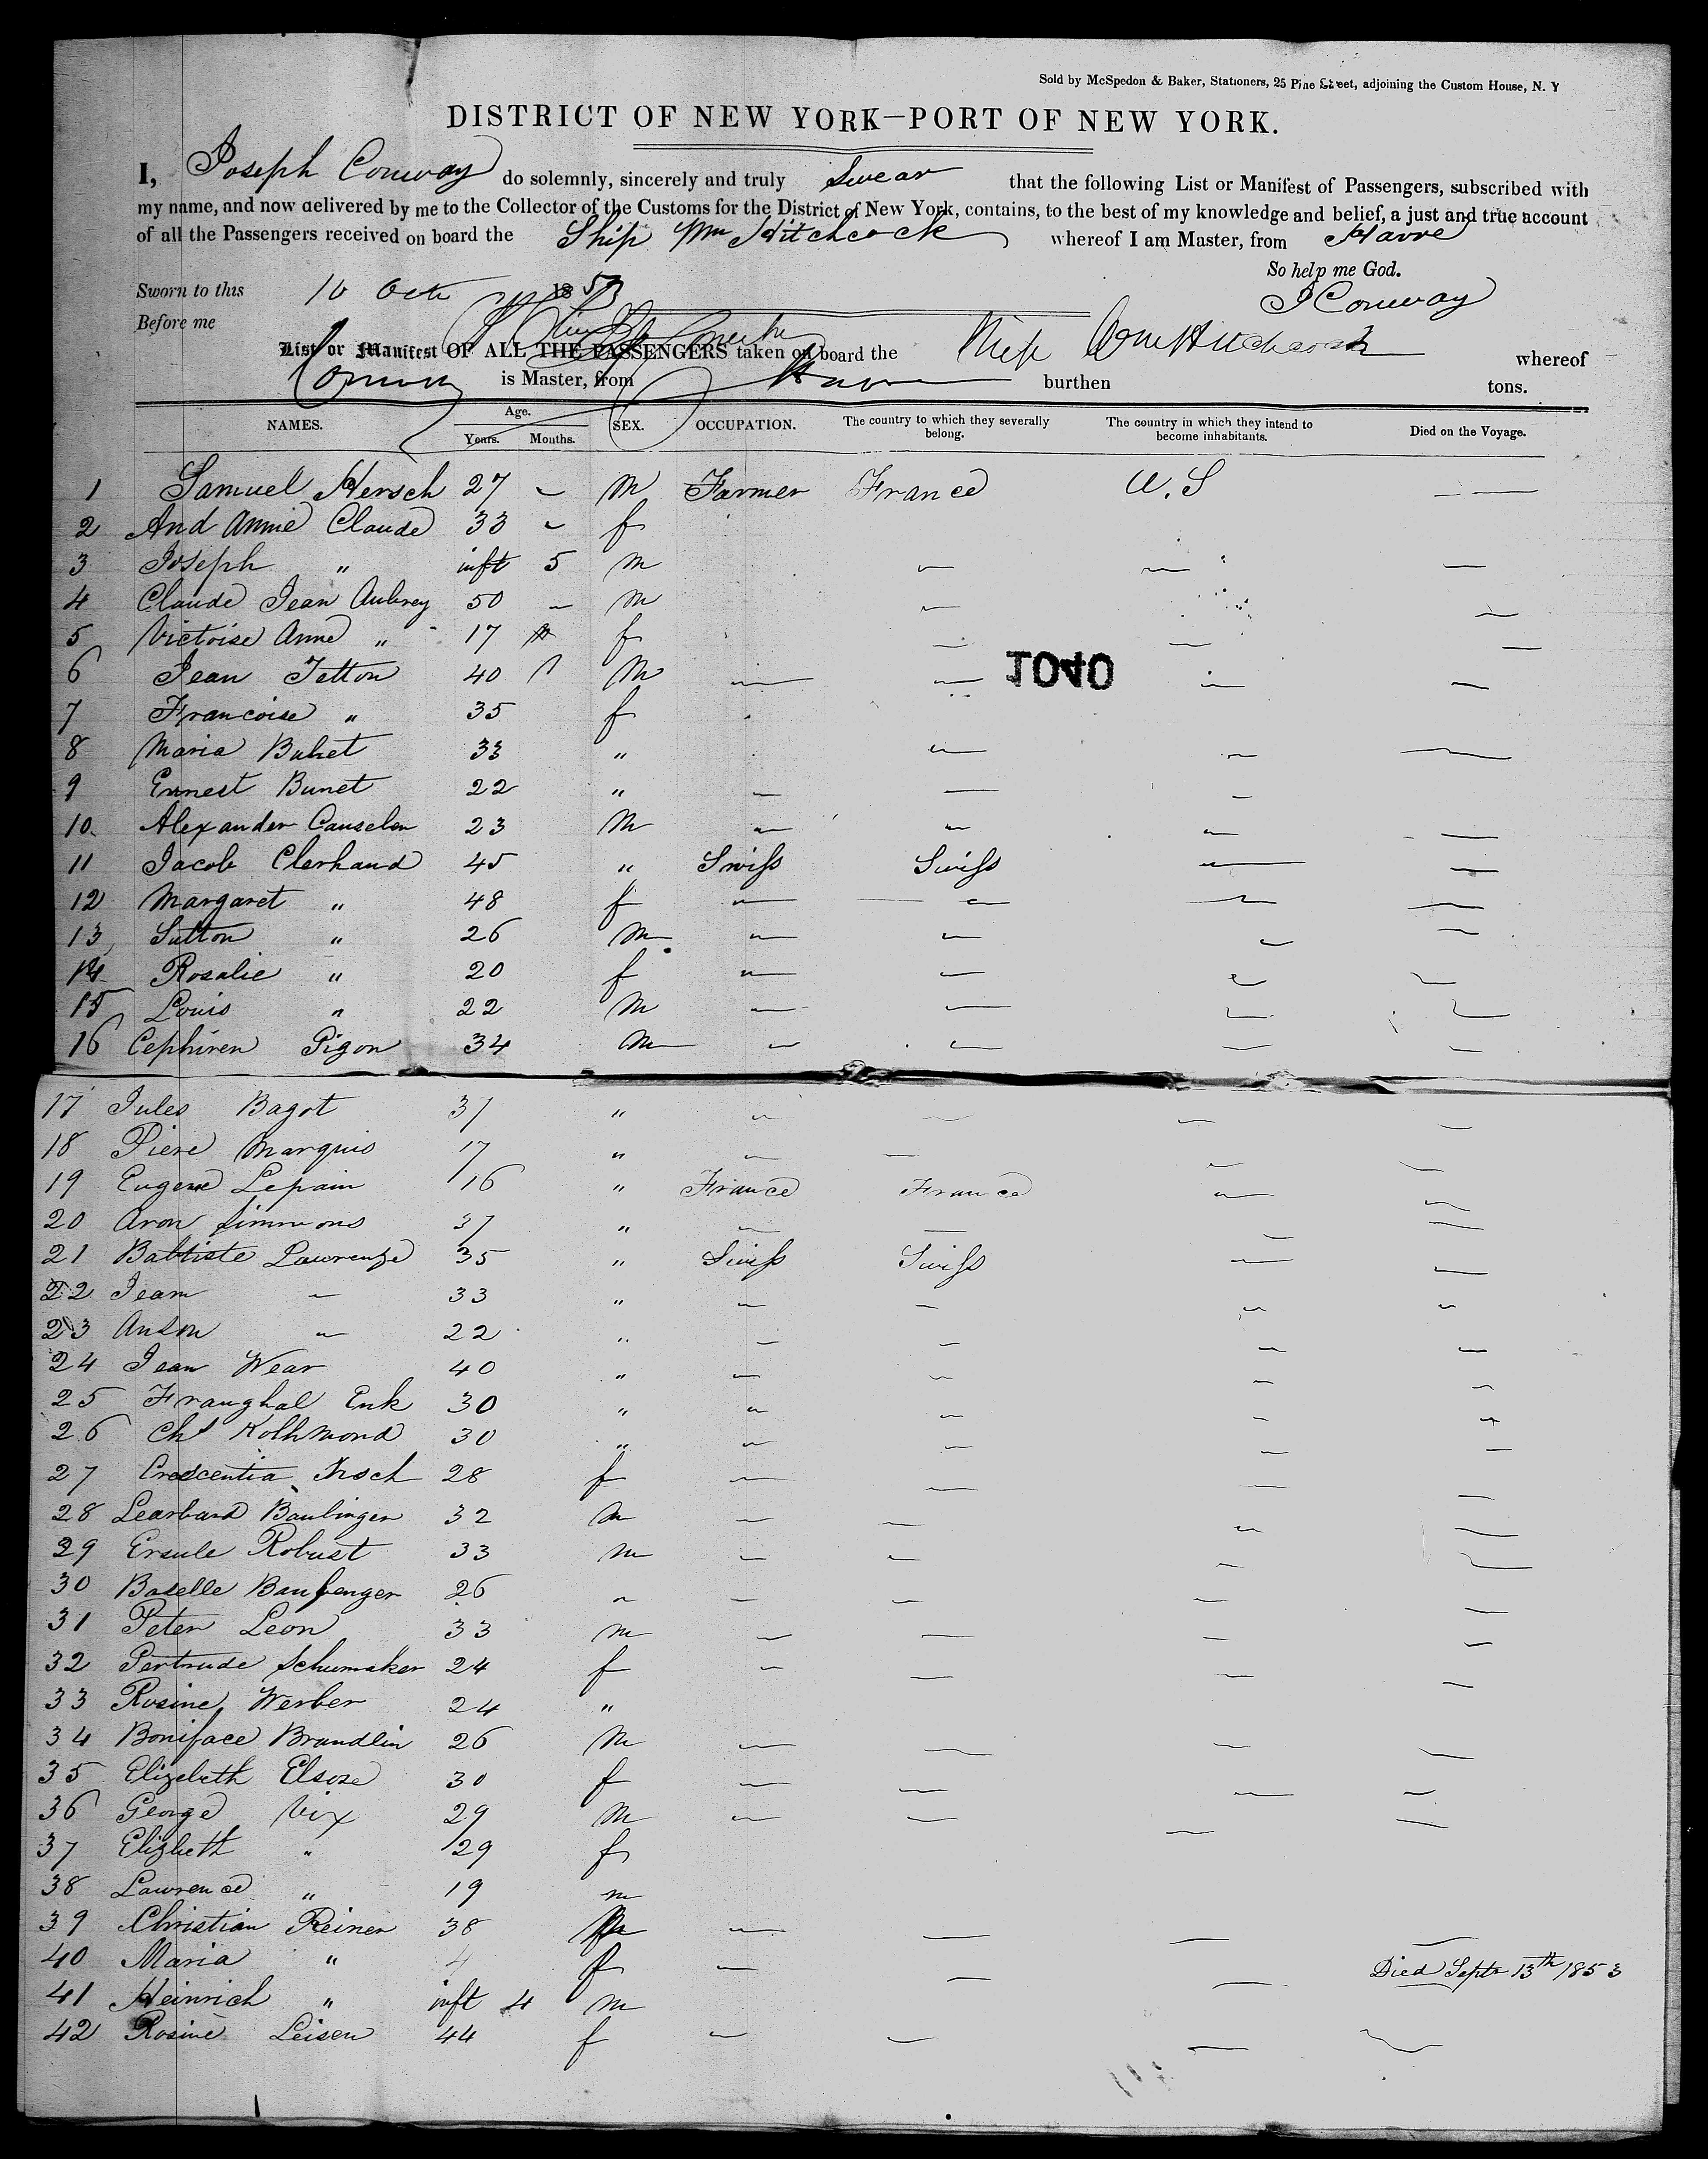 Sold by McSpedon & Baker, Stationers, 25 Pine Street, adjoining the Custom House, N. Y
DISTRICT OF NEW YORK—PORT OF NEW YORK.
I, Joseph Conway do solemnly, sincerely and truly Swear that the following List or Manifest of Passengers, subscribed with
my name, and now delivered by me to the Collector of the Customs for the District of New York, contains, to the best of my knowledge and belief, a just and true account
of all the Passengers received on board the Ship Wm Hitchcock whereof I am Master, from Havre
So help me God.
Sworn to this 10 Oct 1853
J Conway
Before me
List or Manifest OF ALL THE PASSENGERS taken on board the Ship Wm Hitchcock whereof
Conway is Master, from Havre burthen tons.
NAMES. Age. Years. Months. SEX. OCCUPATION. The country to which they severally belong. The country in which they intend to become inhabitants. Died on the Voyage.
1 Samuel Hersch 27 — m Farmer France U.S — —
2 And Annie Claude 33 — f
3 Joseph " inft 5 m — — —
4 Claude Jean Aubrey 50 — m — —
5 Victoise Anne " 17 f — — —
6 Jean Tetton 40 M — — — —
JOHO
7 Francoise " 35 f
8 Maria Buhet 33 " — — —
9 Ernest Bunet 22 " — — —
10 Alexander Causelon 23 M — — — —
11 Jacob Clerhaud 45 " Swiss Swiss — —
12 Margaret " 48 f — — — —
13 Sutton " 26 M — — — —
14 Rosalie " 20 f — — — —
15 Louis " 22 M — — — —
16 Cephiren Pigon 34 M — — — —
17 Jules Bagot 37 " — — — —
18 Piere Marquis 17 " — — — —
19 Eugene Lepain 16 " France France — —
20 Aron Simmons 37 " — — — —
21 Babtiste Lawrenze 35 " Swiss Swiss — —
22 Jean — 33 " — — — —
23 Anton — 22 " — — — —
24 Jean Wear 40 " — — — —
25 Fraughal Enk 30 " — — — —
26 Chs Kolhmond 30 " — — — —
27 Crescentia Irsch 28 f — — — —
28 Learbard Baulinger 32 m — — — —
29 Ersule Robust 33 m — — — —
30 Baselle Baufenger 26 " — — — —
31 Peter Leon 33 m — — — —
32 Gertrude Schumaker 24 f — — — —
33 Rosine Werber 24 "
34 Boniface Brandlin 26 M — — — —
35 Elizebeth Elsose 30 f — — — —
36 George Vix 29 M — — — —
37 Elizbeth " 29 f
38 Lawrence " 19 m
39 Christian Reiner 38 m — — — —
40 Maria " 4 f — — — Died Septr 13th 1853
41 Heinrich " inft 4 m
42 Rosine Leisen 44 f — — — —